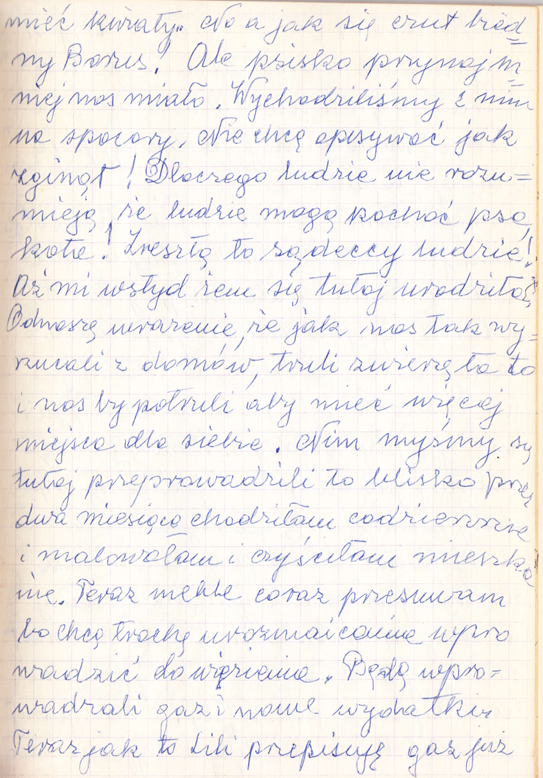 mieć kwiaty. No a jak się czuł bied=
ny Borus! Ale psisko przynajm=
niej nas miało. Wychodziliśmy z nim
na spacery. Nie chcę opisywać jak
zginął! Dlaczego ludzie nie rozu=
mieją, że ludzie mogą kochać psa,
kota! Zresztą to sądeccy ludzie!
Aż mi wstyd żem się tutaj urodziła.
Odnoszę wrażenie, że jak nas tak wy=
rzucali z domów, truli zwierzęta to
i nas by potruli aby mieć więcej
miejsca dla siebie. Nim myśmy się
tutaj przeprowadzili to blisko przez
dwa miesiące chodziłam codziennie
i malowałam i czyściłam mieszka
nie. Teraz meble coraz przesuwam
bo chcę trochę urozmaicenia wpro
wadzić do więzienia. Będą wpro=
wadzali gaz i nowe wydatki.
Teraz jak to Lili przepisuję gaz już